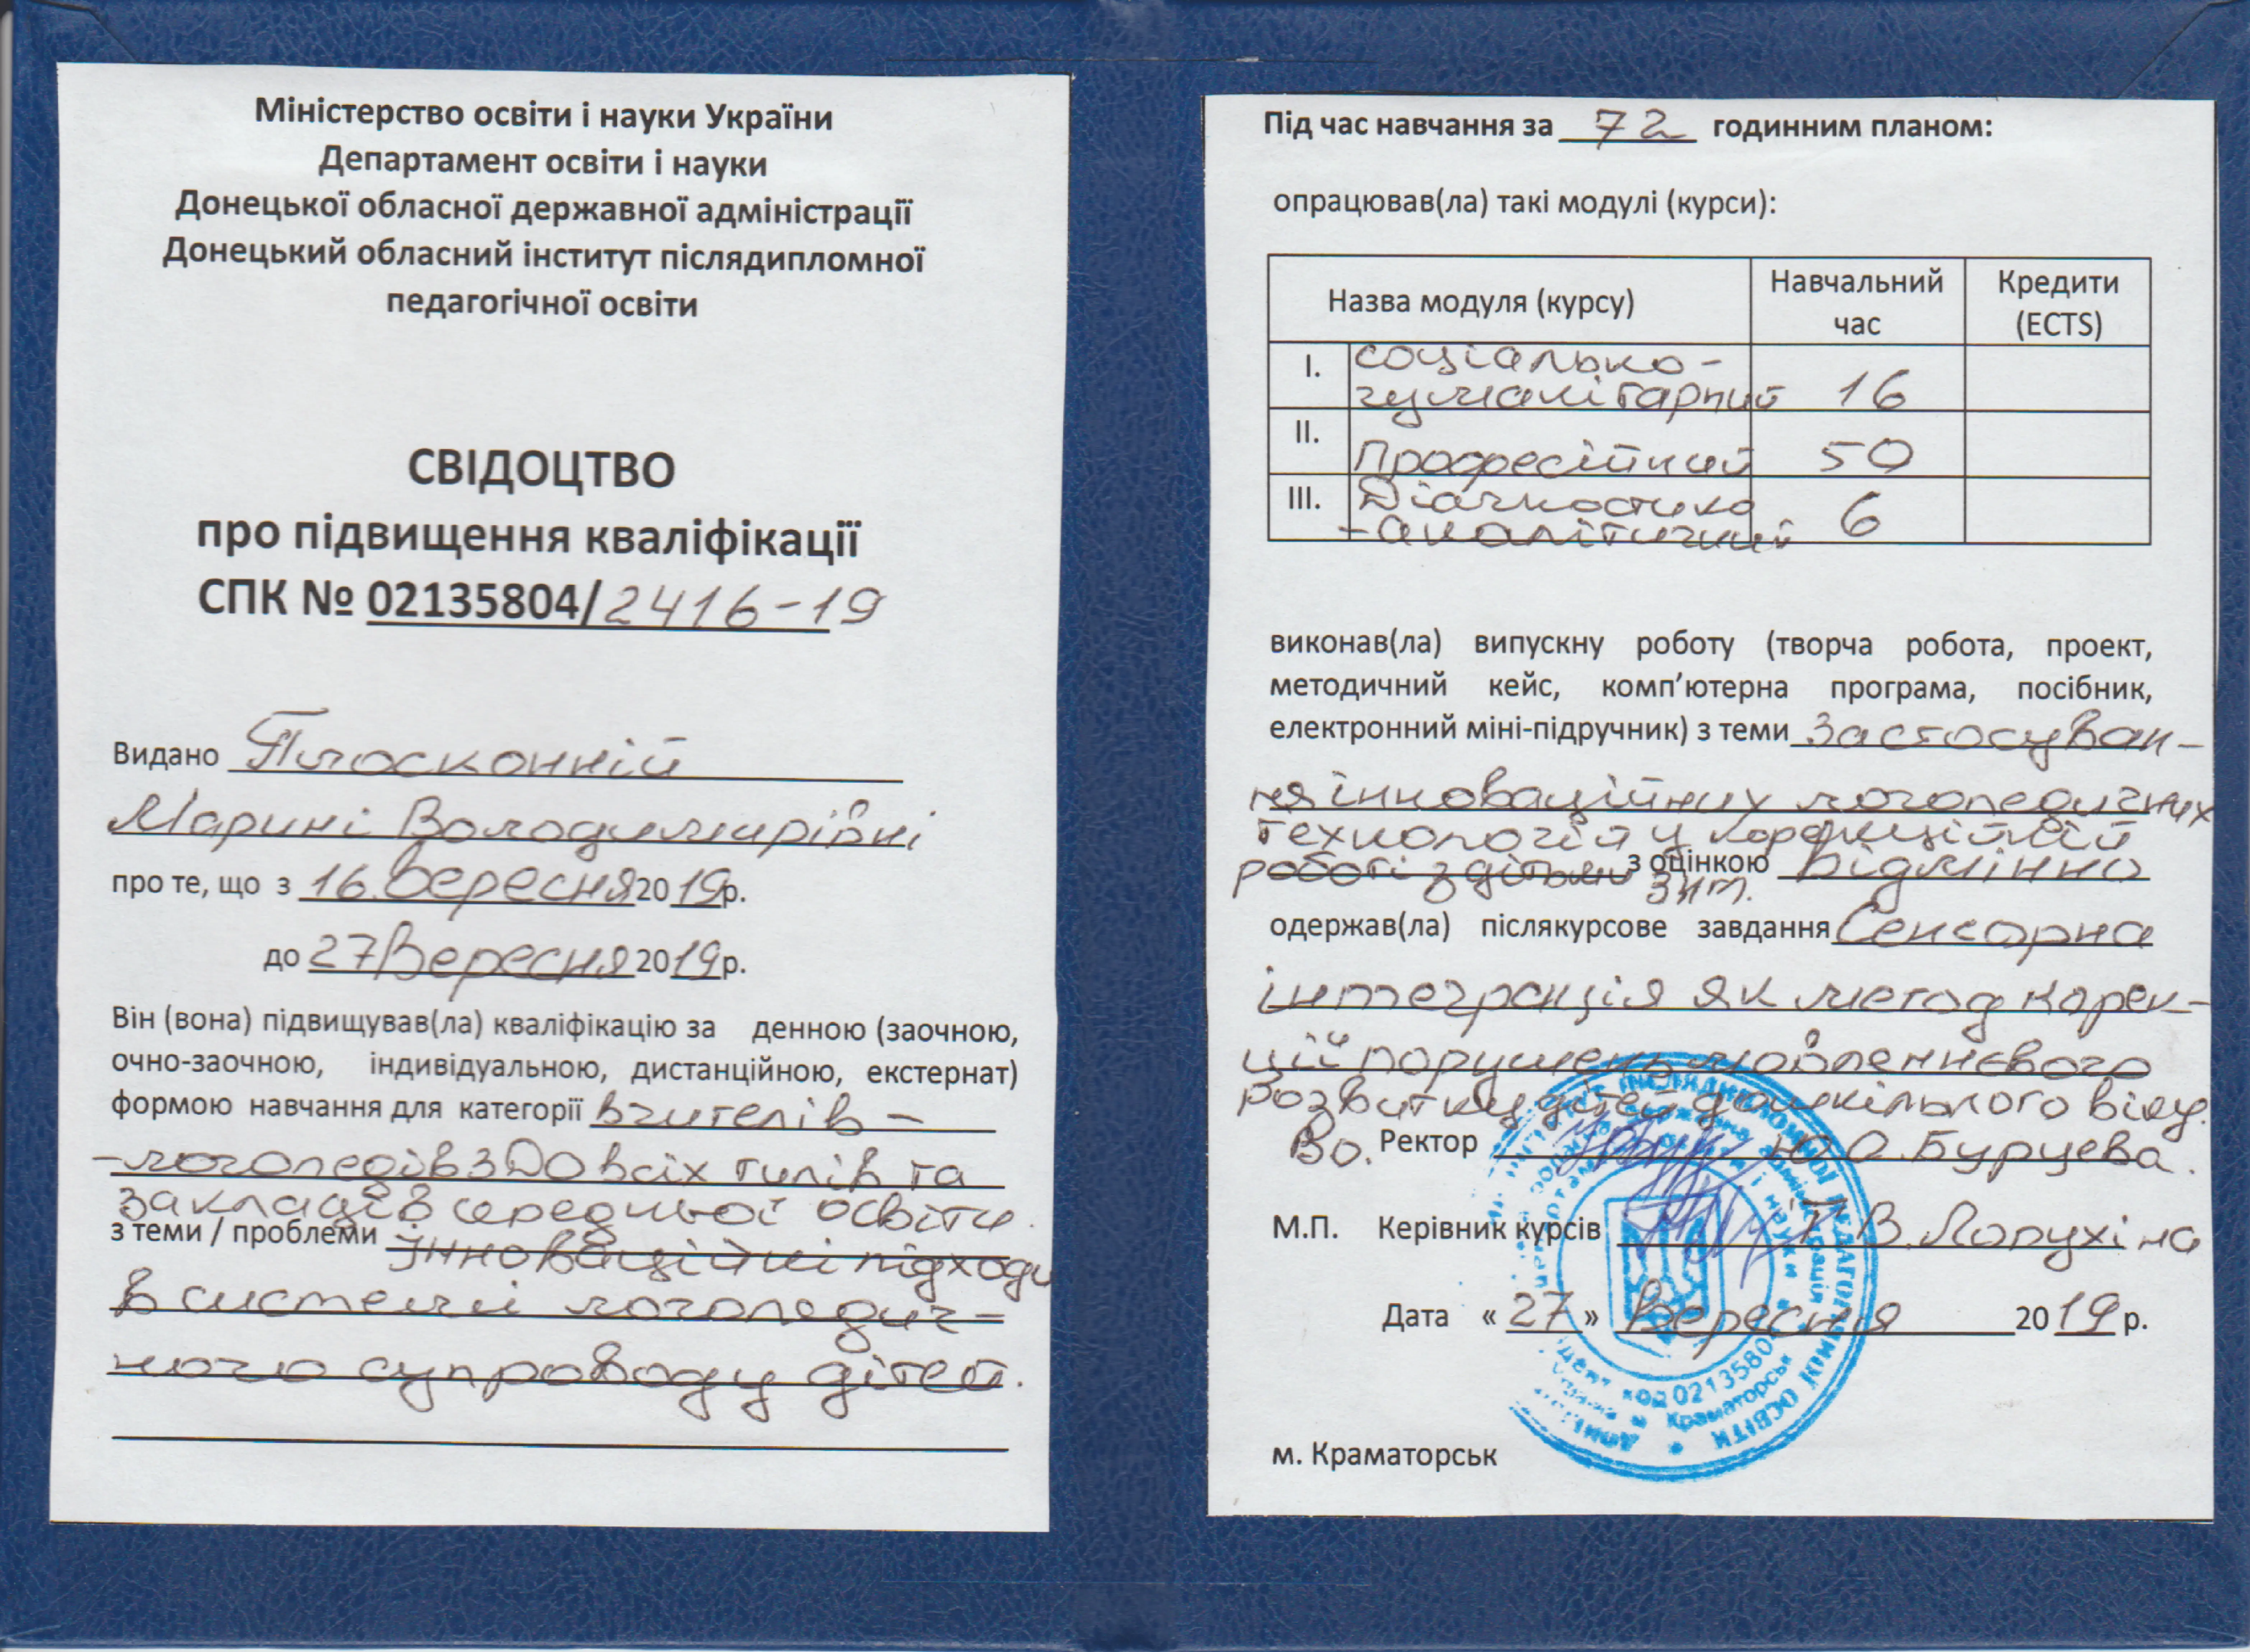 Міністерство освіти і науки України
Департамент освіти і науки
Донецької обласної державної адміністрації
Донецький обласний інститут післядипломної
педагогічної освіти
СВІДОЦТВО
про підвищення кваліфікації
СПК № 02135804/2416-19
Видано Плосконній
Марині Володимирівні
про те, що з 16 вересня 2019р.
до 27 Вересня 2019р.
Він (вона) підвищував(ла) кваліфікацію за денною (заочною,
очно-заочною, індивідуальною, дистанційною, екстернат)
формою навчання для категорії вчителів –
–логопедів ЗДО всіх типів та
закладів середньої освіти.
з теми / проблеми Інноваційні підходи
в системи логопедич–
ного супроводу дітей.
Під час навчання за 72 годинним планом:
опрацював(ла) такі модулі (курси):
Назва модуля (курсу) Навчальний час Кредити (ECTS)
I. Соціально-
гуманітарний 16
II. Професійний 50
III. Діагностико
-аналітичний 6
виконав(ла) випускну роботу (творча робота, проект,
методичний кейс, комп’ютерна програма, посібник,
електронний міні-підручник) з теми Застосуван–
ня інноваційних логопедичних
технологій у корекційній
роботі з дітьми з оцінкою Відмінно
одержав(ла) післякурсове завдання Сенсорна
інтеграція як метод корек–
ції порушень мовленнєвого
розвитку дітей дошкільного віку.
Во. Ректор Ю.О. Бурцева.
М.П. Керівник курсів Т.В. Лопухіна
Дата « 27 » Вересня 2019 р.
код 02135804
Краматорськ
м. Краматорськ